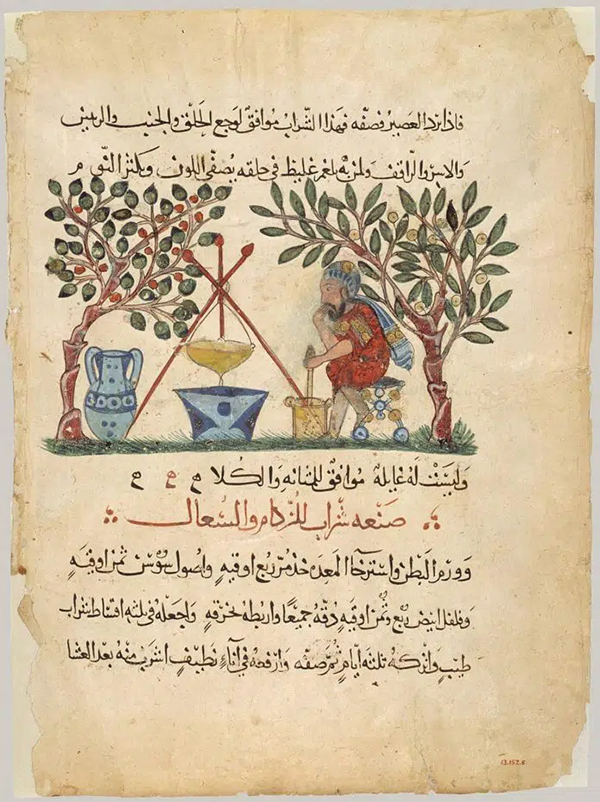 فاذا برد العصير فصفه فهذا الشراب موافق لوجع الحلق والجنب والريتين
والاسر والراقف ولمن به بلغم غليظ في حلقه يصفي اللون ويكثر النوم م
وليست له غايلة موافق للمثانه والكلا
صنعه شراب للزكام والسعال
وورم البطن واسترخا المعده خذ مر ربع اوقيه واصول سوس ثمن اوقيه
وفلفل ابيض ربع وثمن اوقيه دقه جميعًا واربطه بخرقه واجعله في ثلثه اقساط شراب
طيب واتركه ثلثه أيام ثم صفه وارفعه في اناء نظيف اشرب منه بعد العشا
13.152.6